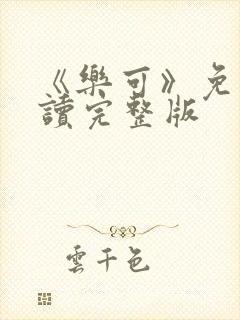 《樂可》免
讀完整版
雲千色